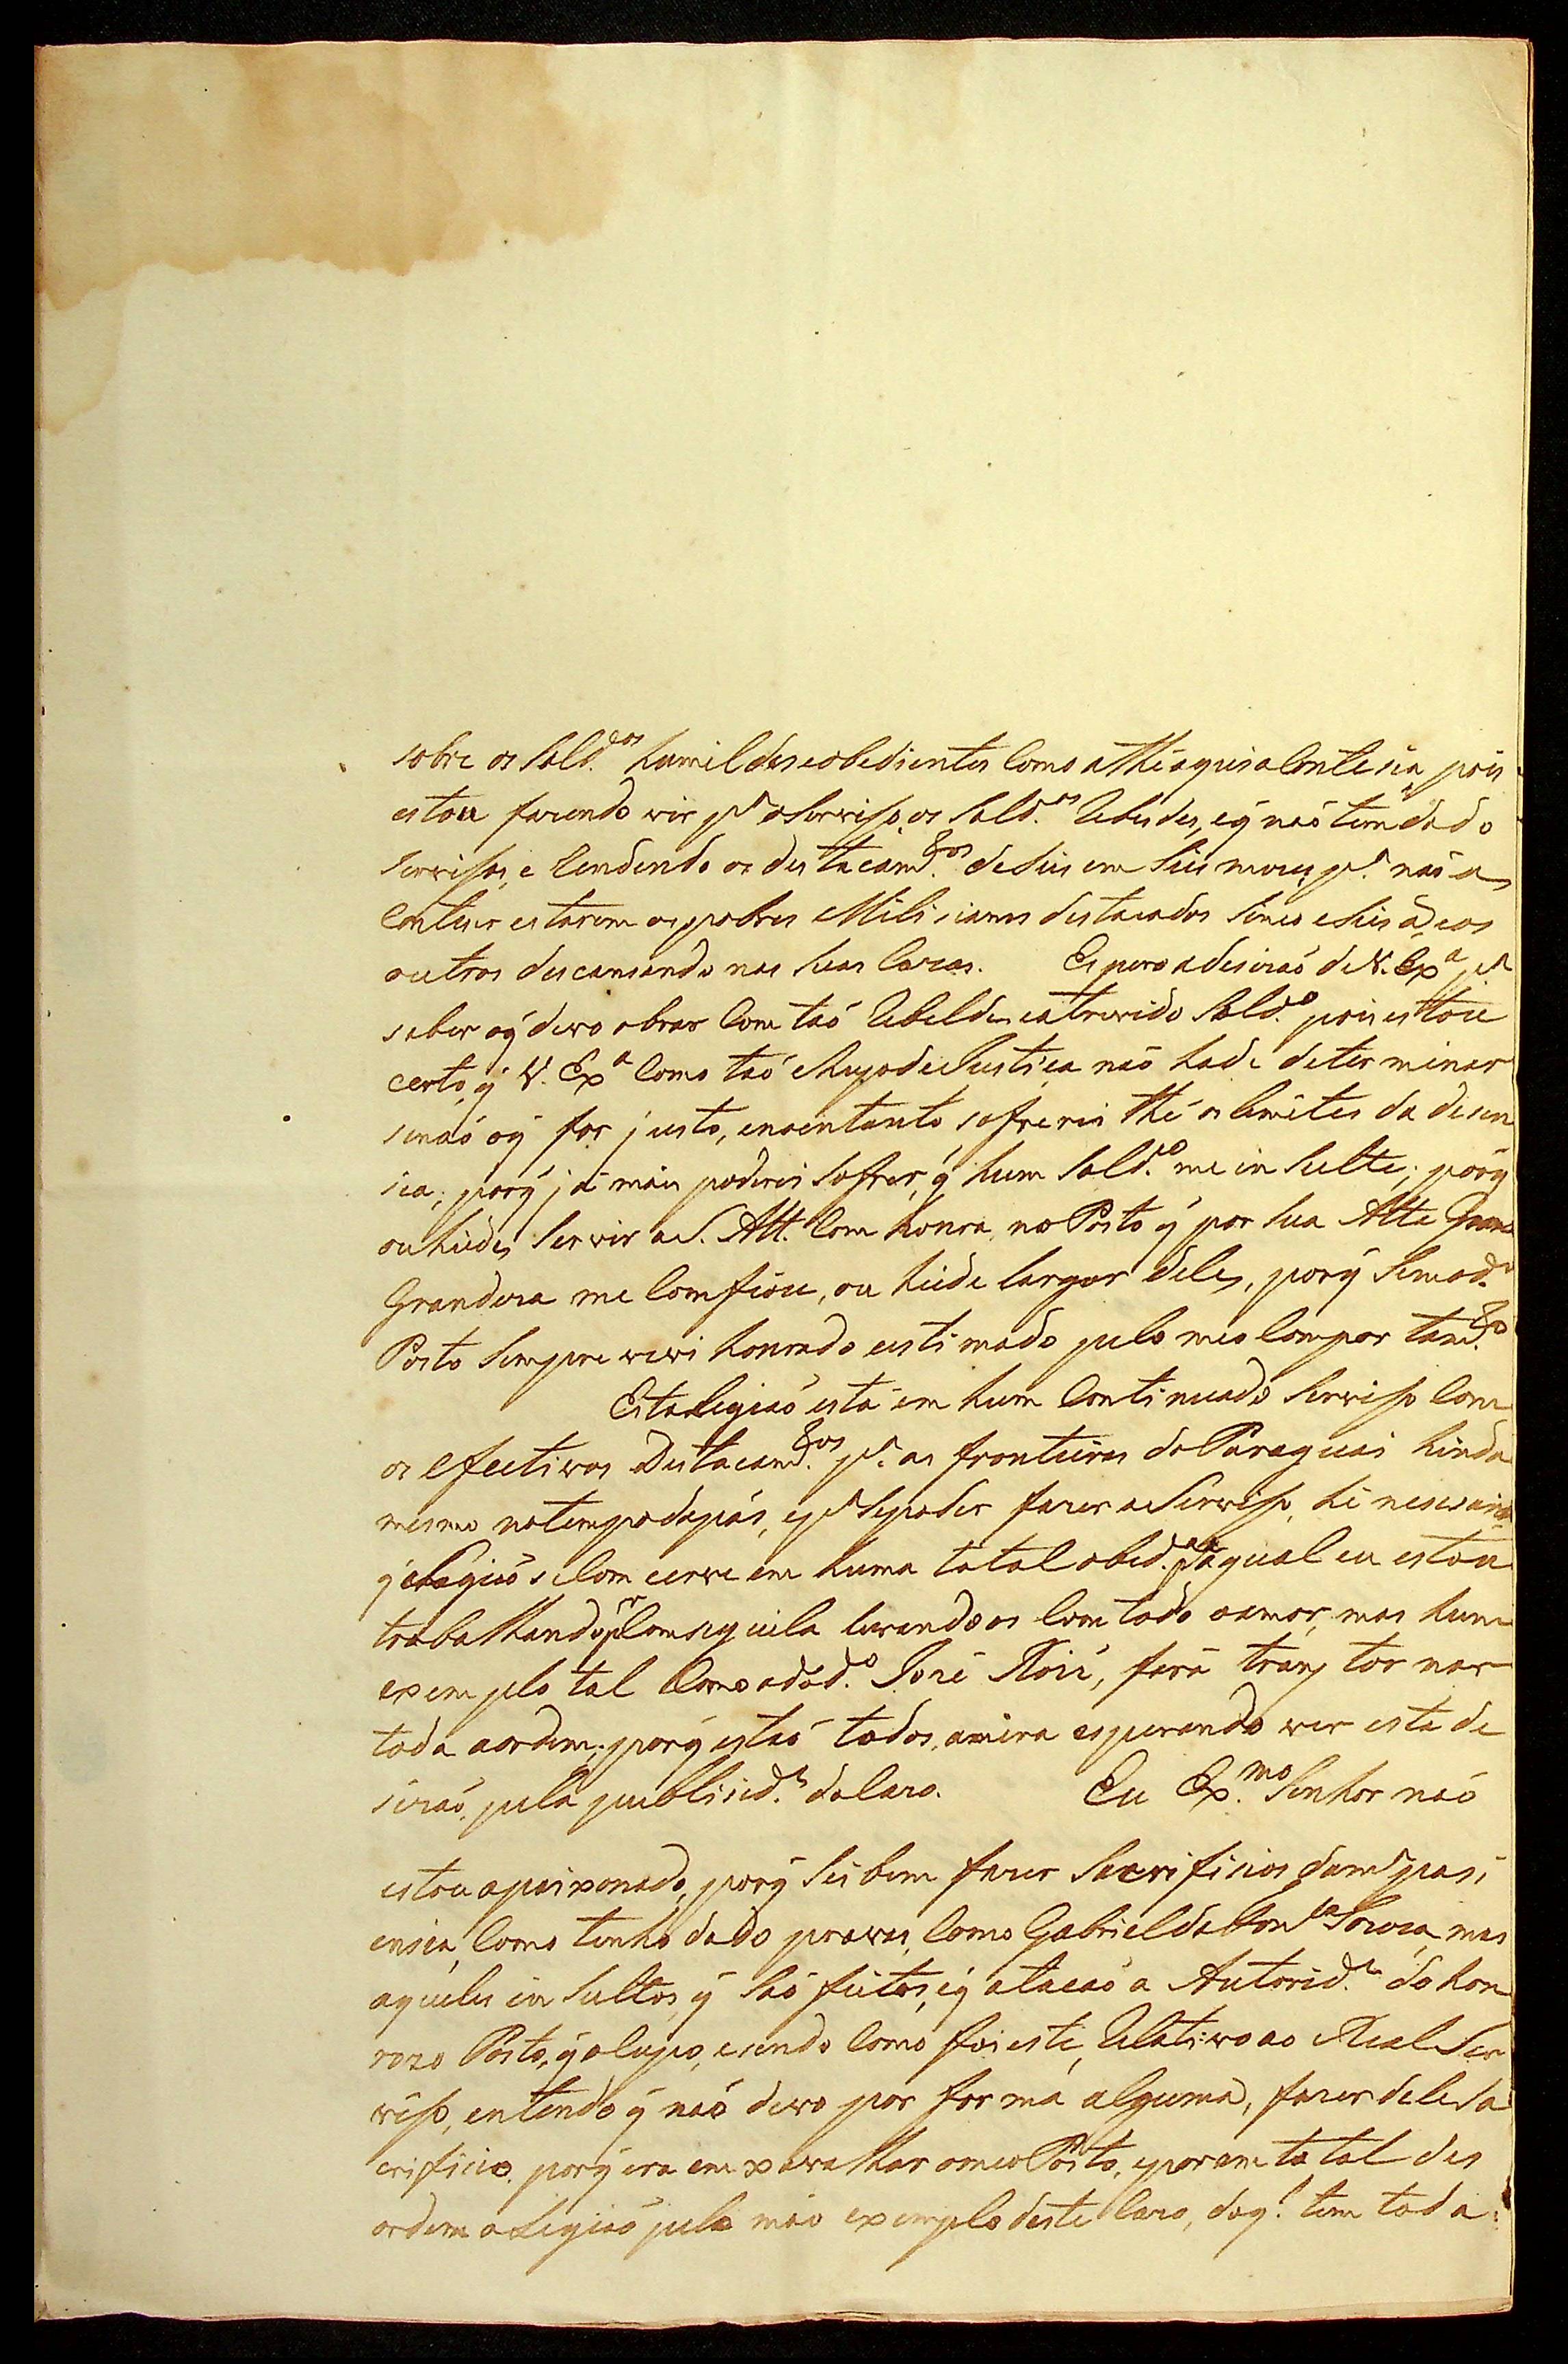 sobre os Sold.os humildes eobedientes Como athéaquiaContesia pois
estou fazendo vir p.a oServiso, os Sold.os Rebeldes, eq̃ naõ tem dado
Servisos, e Rendendo os destacam.tos deSeis em Seis mezes, p.a naõ a
Conteser estarem os pobres Milisianos destacados Sinco eSeis ã eos
outros descansando nas Suas Cazas. Espero adesizaõ deV. Exª p.a
saber oq̃ devo obrar Com taõ Rebelde, eatrevido Sold.o pois estou
certo, q̃ V. Exª Como taõ cheyo deJustiça naõ hade determinar
senaõ oq̃ for justo, enoentanto, sofrerei thé os limites da desen
sia; porq̃ já mais poderei Sofrer, q̃ hum Sold.o me in Sulte; porq̃
ouhéide, Servir aS. Alt. Com honra, no Posto q̃ por Sua Alta
Grandeza me Comfiou, ou héide largar dele, porq̃ Semod.o
Posto Sempre vivi honrado eestimado pelo meo Compor tam.to
EstaLegiaõ está em hum Continuado Serviso Com
os efectivos Destacam.tos p.a as fronteiras doParaguai hinda
mesmo notempodepás, ep.a Sepoder fazer oServiso, hé nesesario
q̃aLegiaõ seComcerve em huma total obed.a p.a aqual eu estou
trabalhando p.r Comseguila levandoos Comtodo oamor, mas hum
exemplo tal Como odod.o José Roiz, fará trans tor nar
toda aordem; porq̃ estaõ todos, amira esperando ver esta de
sizaõ, pela publisid.e doCazo. Eu Ex.mo Senhor naõ
estou apaixonado, porq̃ Sei bem fazer Sacrifisios dam.a pasi
ensia, Como tenho dado provas, Como Gabriel daFon.ca Souza, mas
aqueles in Sultos, q̃ Saõ feitos, eq̃ atacaõ a Autorid.e do hon
rozo Posto, q̃ocupo, esendo Como foi este, Relativo ao Real Ser
viso, entendo q̃ naõ devo por forma alguma, fazer dele Sa
crifisio, porq̃ era em xova lhar omeoPosto, eporem total des
ordem aLegiaõ pelo máo exemplo deste Cazo, doq.l tem toda